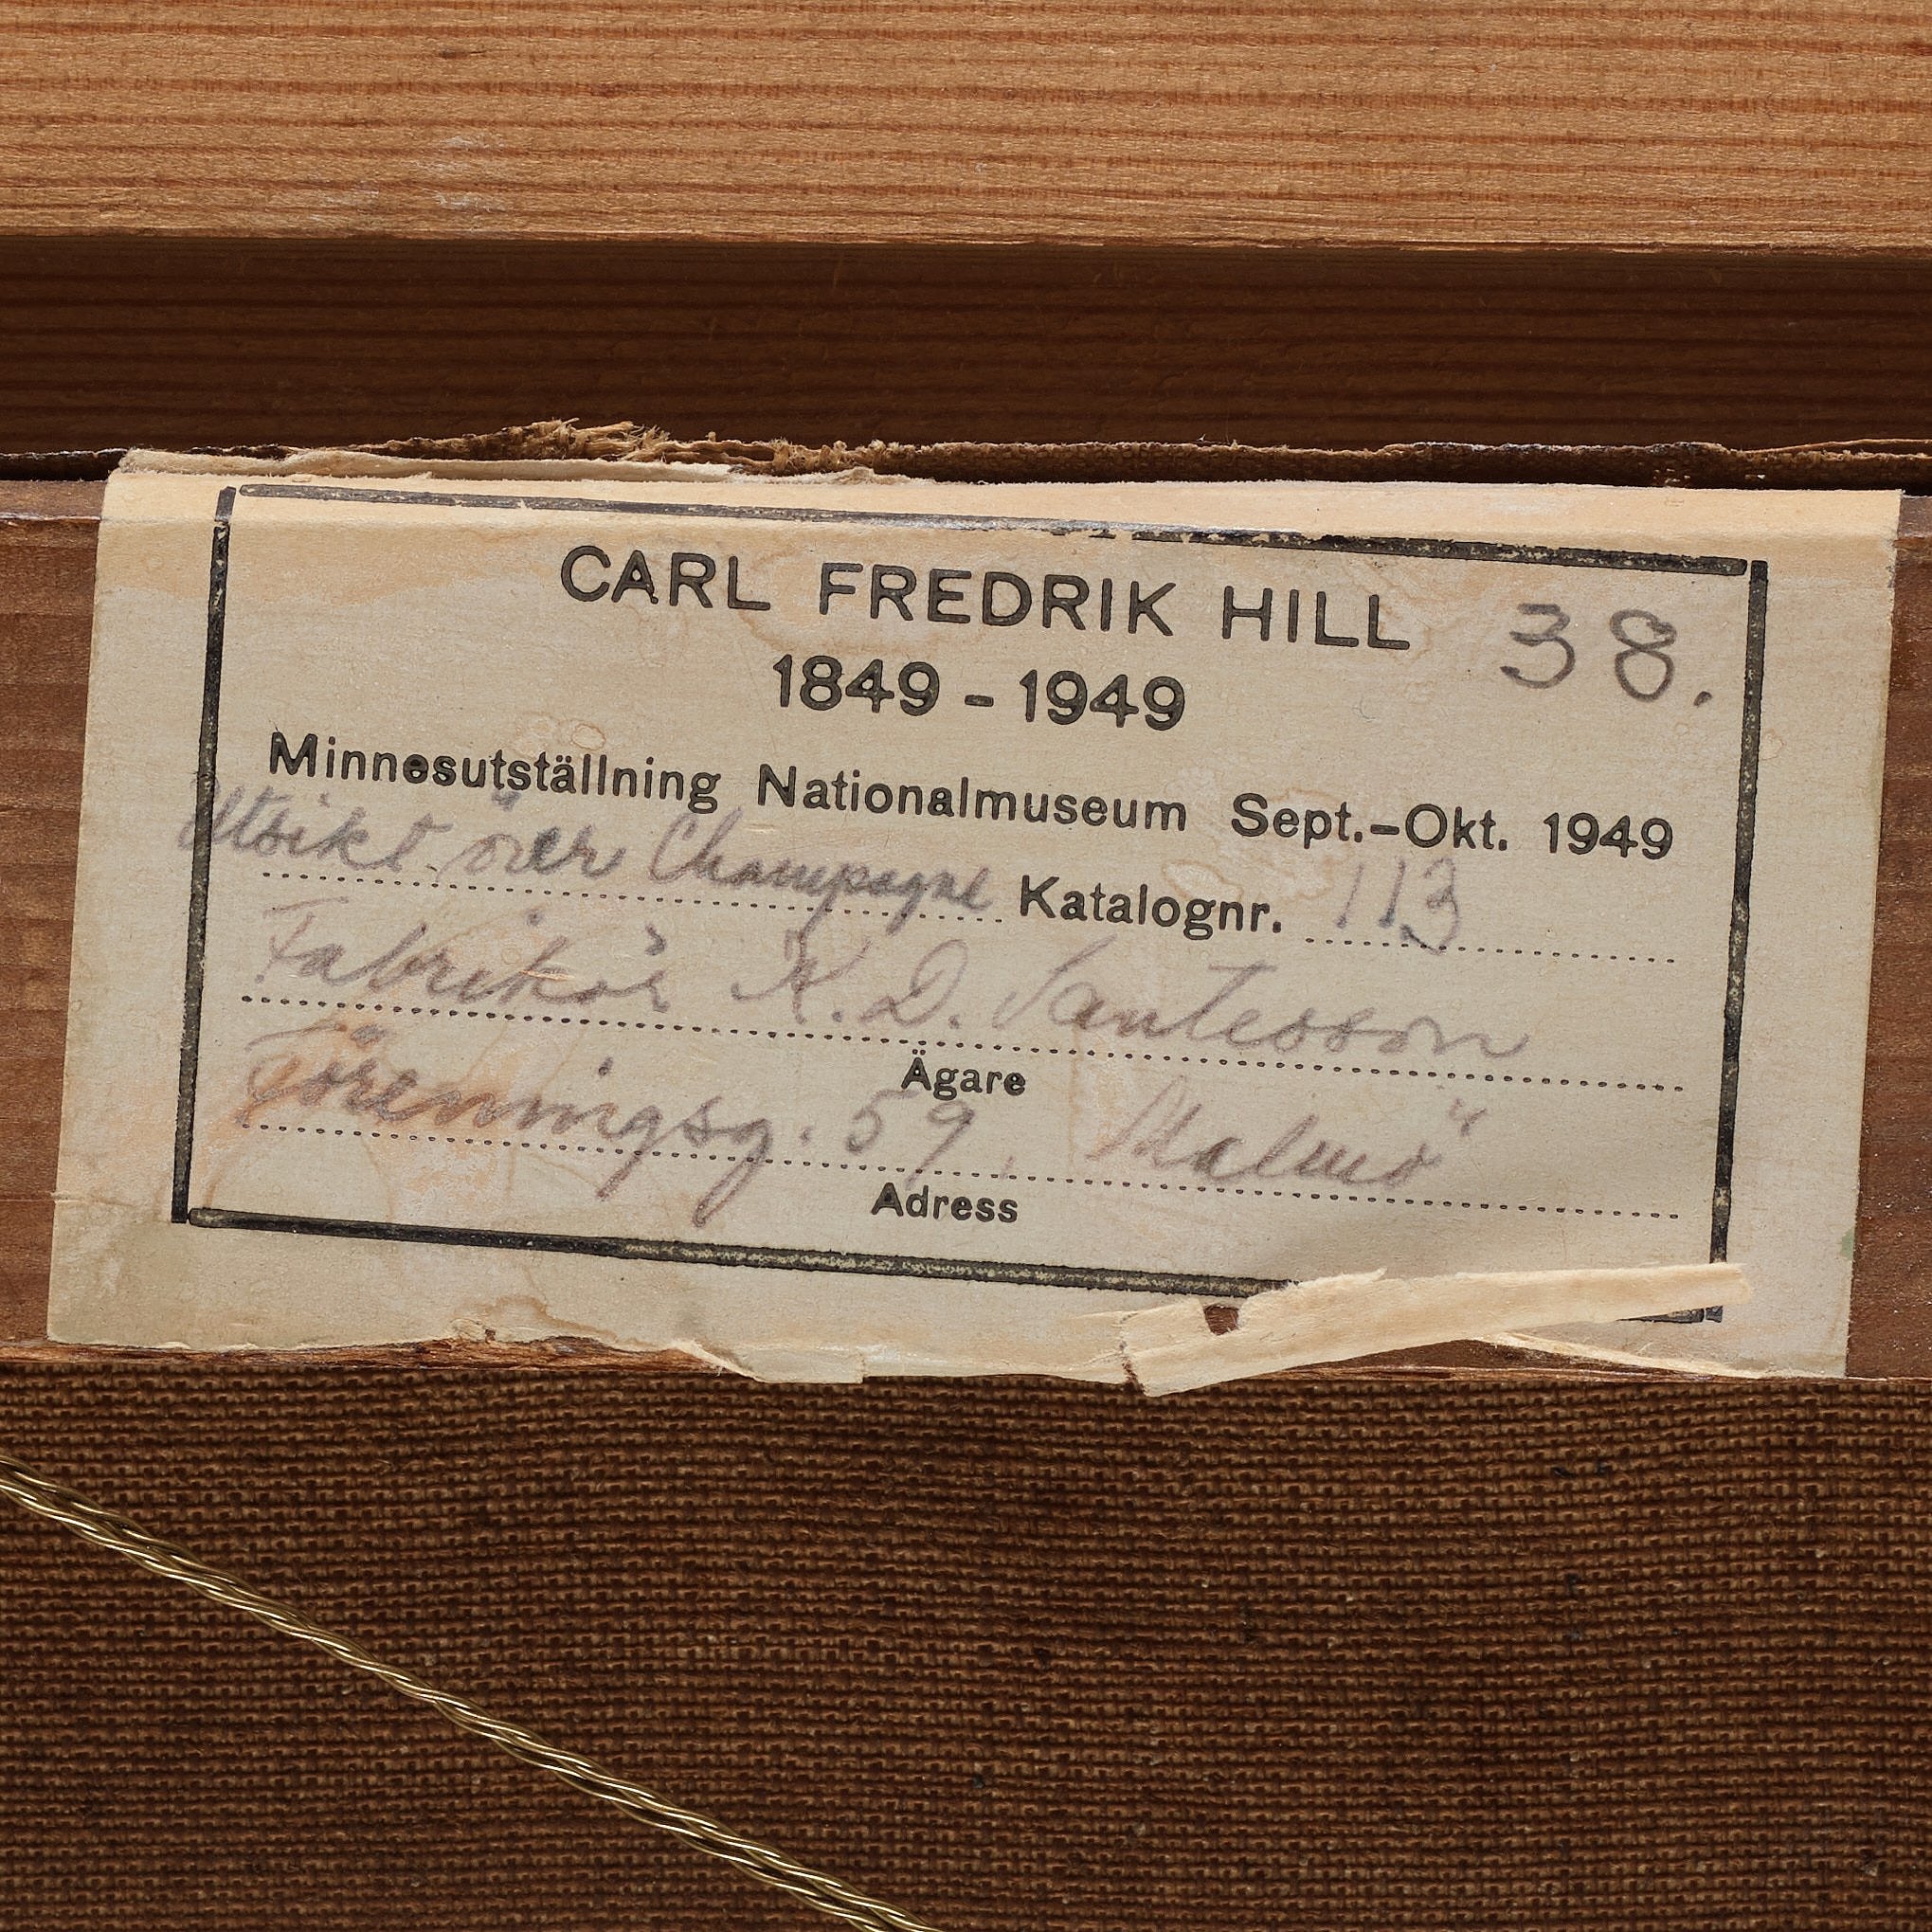 CARL FREDRIK HILL 38.
1849 - 1949
Minnesutställning Nationalmuseum Sept.-Okt. 1949
Utsikt över Champagne Katalognr. 113
Fabrikör K. D. Santesson
Ägare
Föreningsg. 59, Malmö
Adress